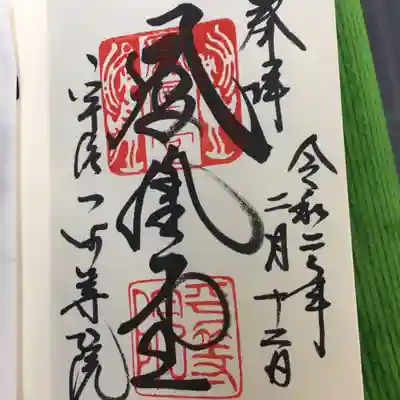 奉拝
令和二年
二月十二日
鳳凰堂
宇治平等院